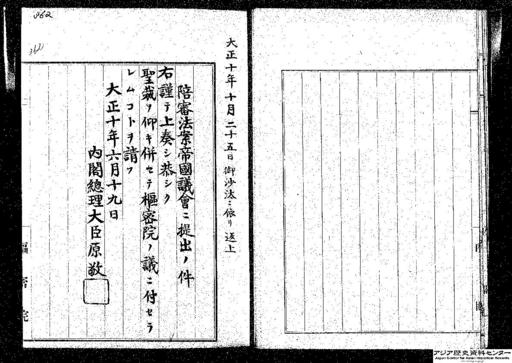 大正十年十月二十五日御沙汰ニ依リ送上
陪審法案帝國議會ニ提出ノ件
右謹テ上奏シ恭シク
聖裁ヲ仰キ併セテ樞密院ノ議ニ付セラ
レムコトヲ請フ
大正十年六月十九日
內閣總理大臣原敬
樞密院
862
アジア歴史資料センター
Japan Center for Asian Historical Records